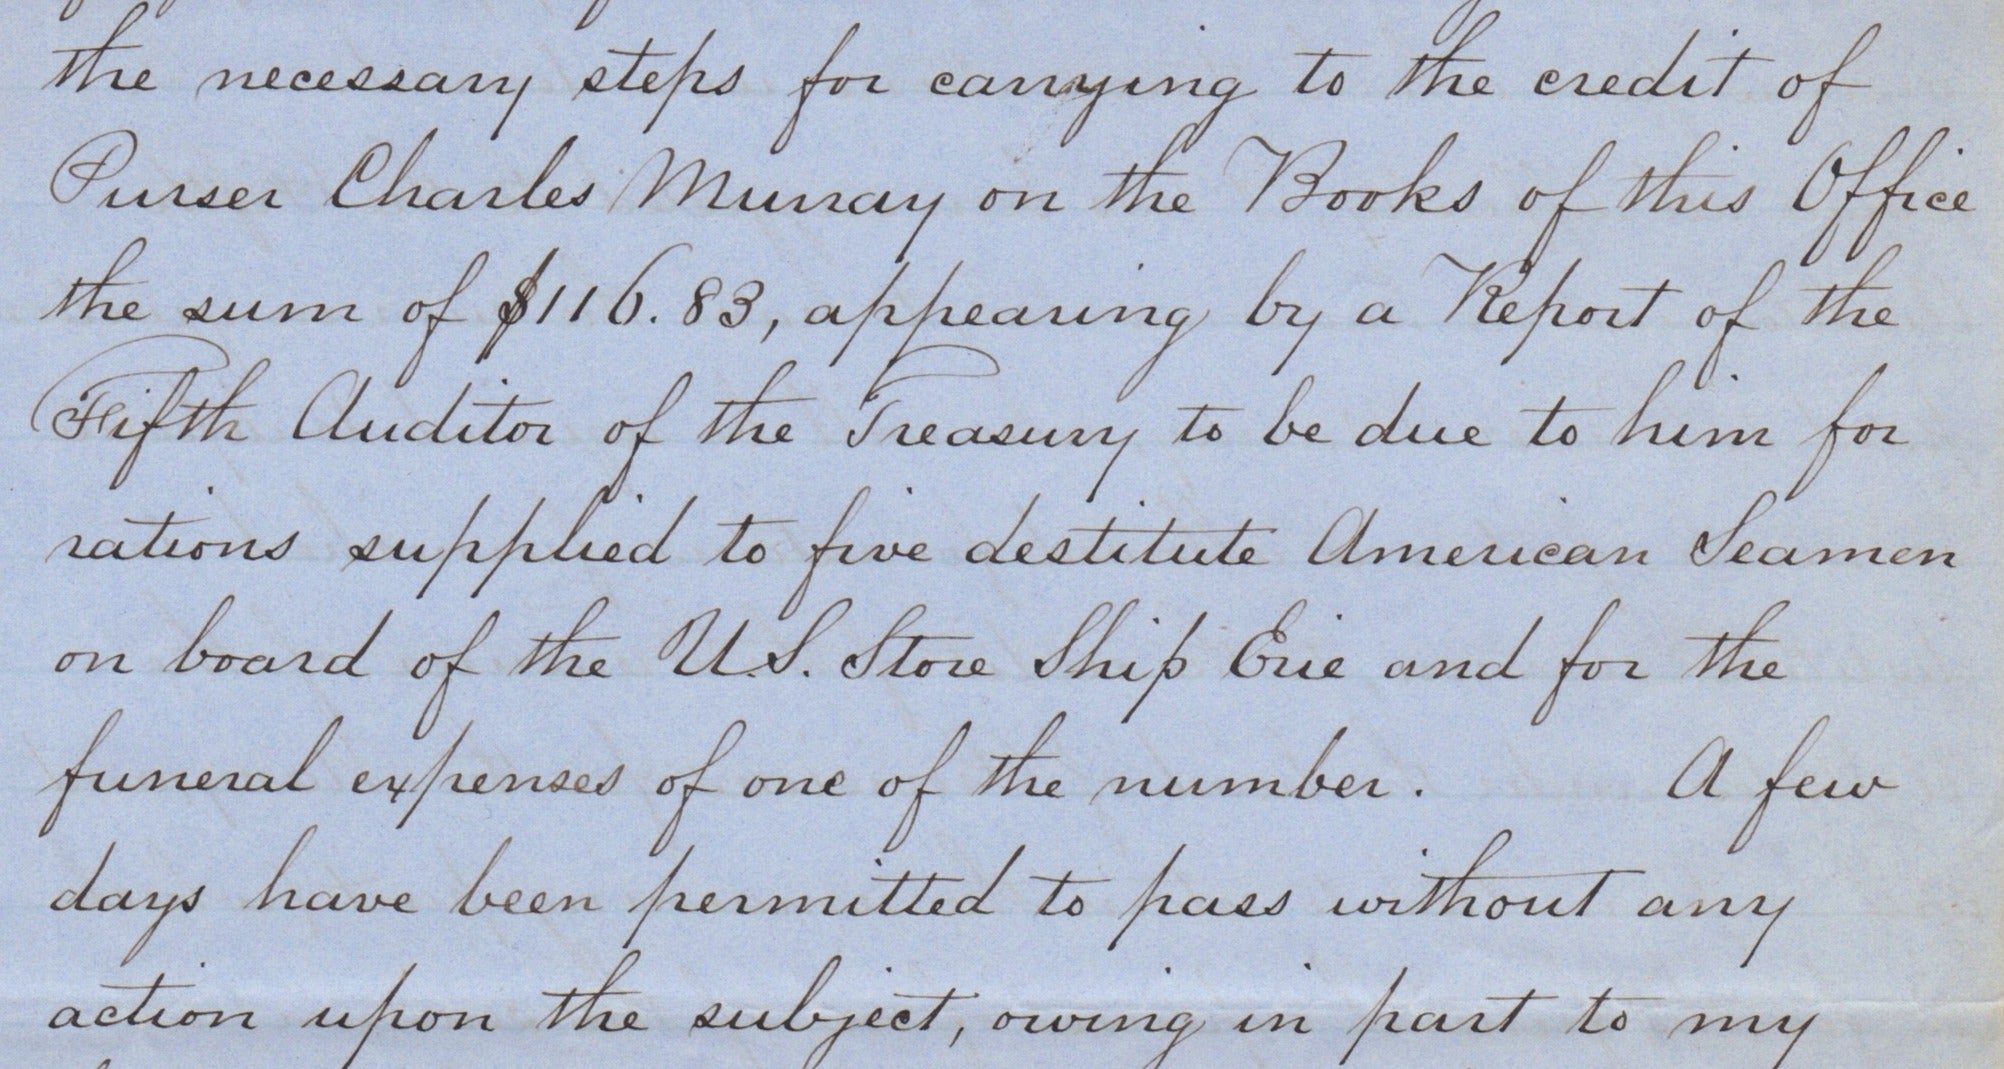 the necessary steps for carrying to the credit of
Purser Charles Murray on the Books of this Office
the sum of $116.83, appearing by a Report of the
Fifth Auditor of the Treasury to be due to him for
rations supplied to five destitute American Seamen
on board of the U.S. Store Ship Erie and for the
funeral expenses of one of the number. A few
days have been permitted to pass without any
action upon the subject, owing in part to my